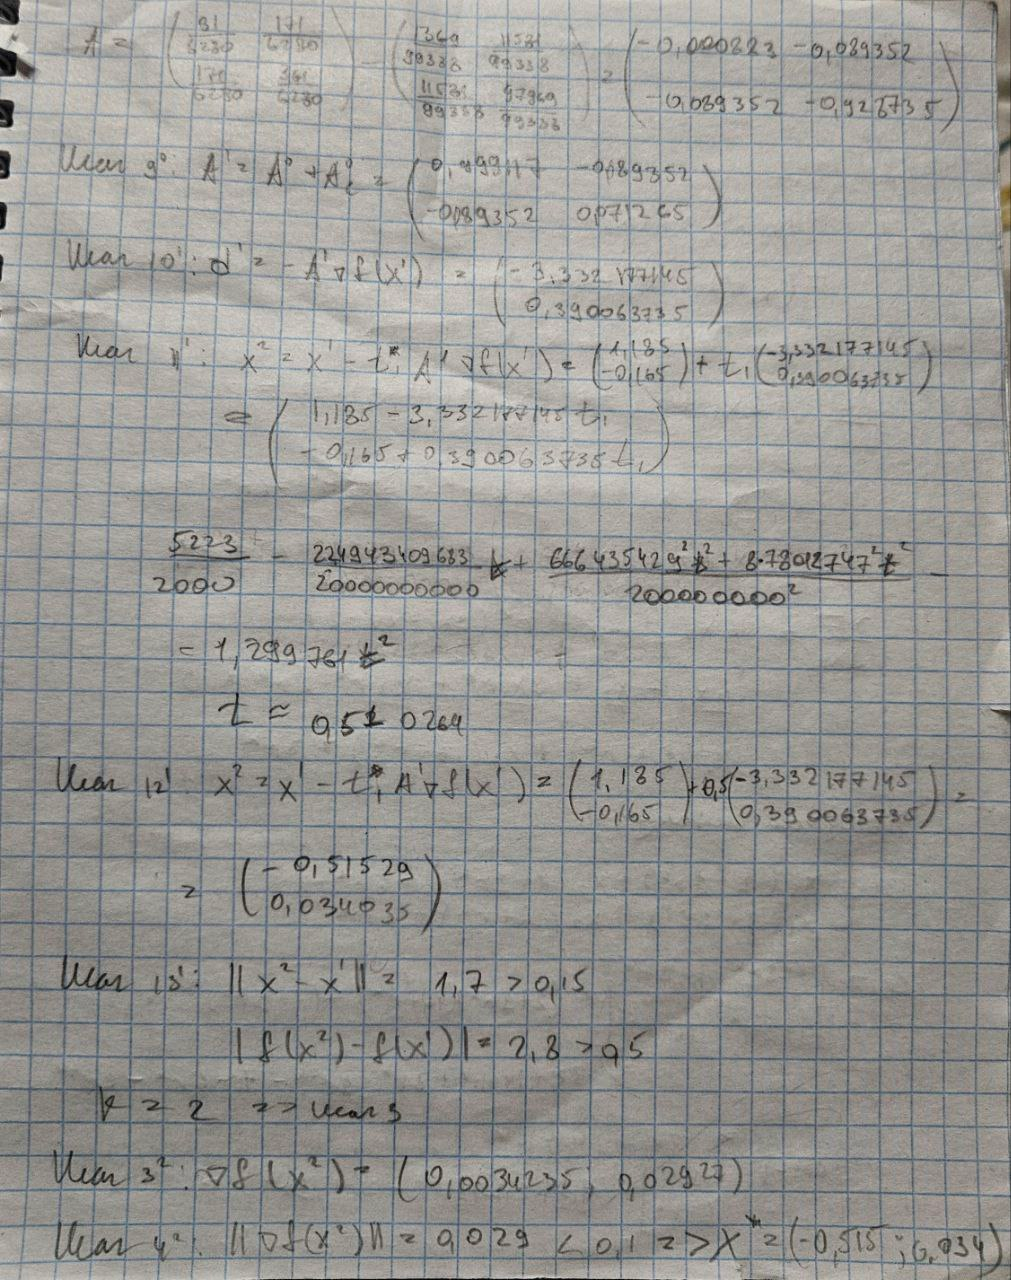 A = ( 31/6230 171/6230 ; 171/6230 361/6230 ) - ( 1369/99338 11581/99338 ; 11581/99338 97969/99338 ) = ( -0,000823 -0,089352 ; -0,089352 -0,928735 )
Шаг 9⁰: A¹ = A⁰ + A⁰c = ( 0,99917 -0,089352 ; -0,089352 0,071265 )
Шаг 10¹: d¹ = -A¹ ∇f(x¹) = ( -3,332177145 ; 0,390063735 )
Шаг 11¹: x² = x¹ - t₁* A¹ ∇f(x¹) = ( 1,185 ; -0,165 ) + t₁ ( -3,332177145 ; 0,390063735 )
= ( 1,185 - 3,332177145 t₁ ; -0,165 + 0,390063735 t₁ )
5223/2000 - 2249943409683/200000000000 t + (666435429² t² + 8·78012747² t²)/200000000² -
- 1,299761 t²
t ≈ 0,510264
Шаг 12¹ x² = x¹ - t₁* A¹ ∇f(x¹) = ( 1,185 ; -0,165 ) + 0,5 ( -3,332177145 ; 0,390063735 ) =
= ( -0,51529 ; 0,034035 )
Шаг 13¹: || x² - x¹ || = 1,7 > 0,15
| f(x²) - f(x¹) | = 2,8 > 0,5
k = 2 => шаг 3
Шаг 3²: ∇f(x²) = (0,0034235; 0,02927)
Шаг 4²: ||∇f(x²)|| = 0,029 < 0,1 => x* = (-0,515; 0,034)